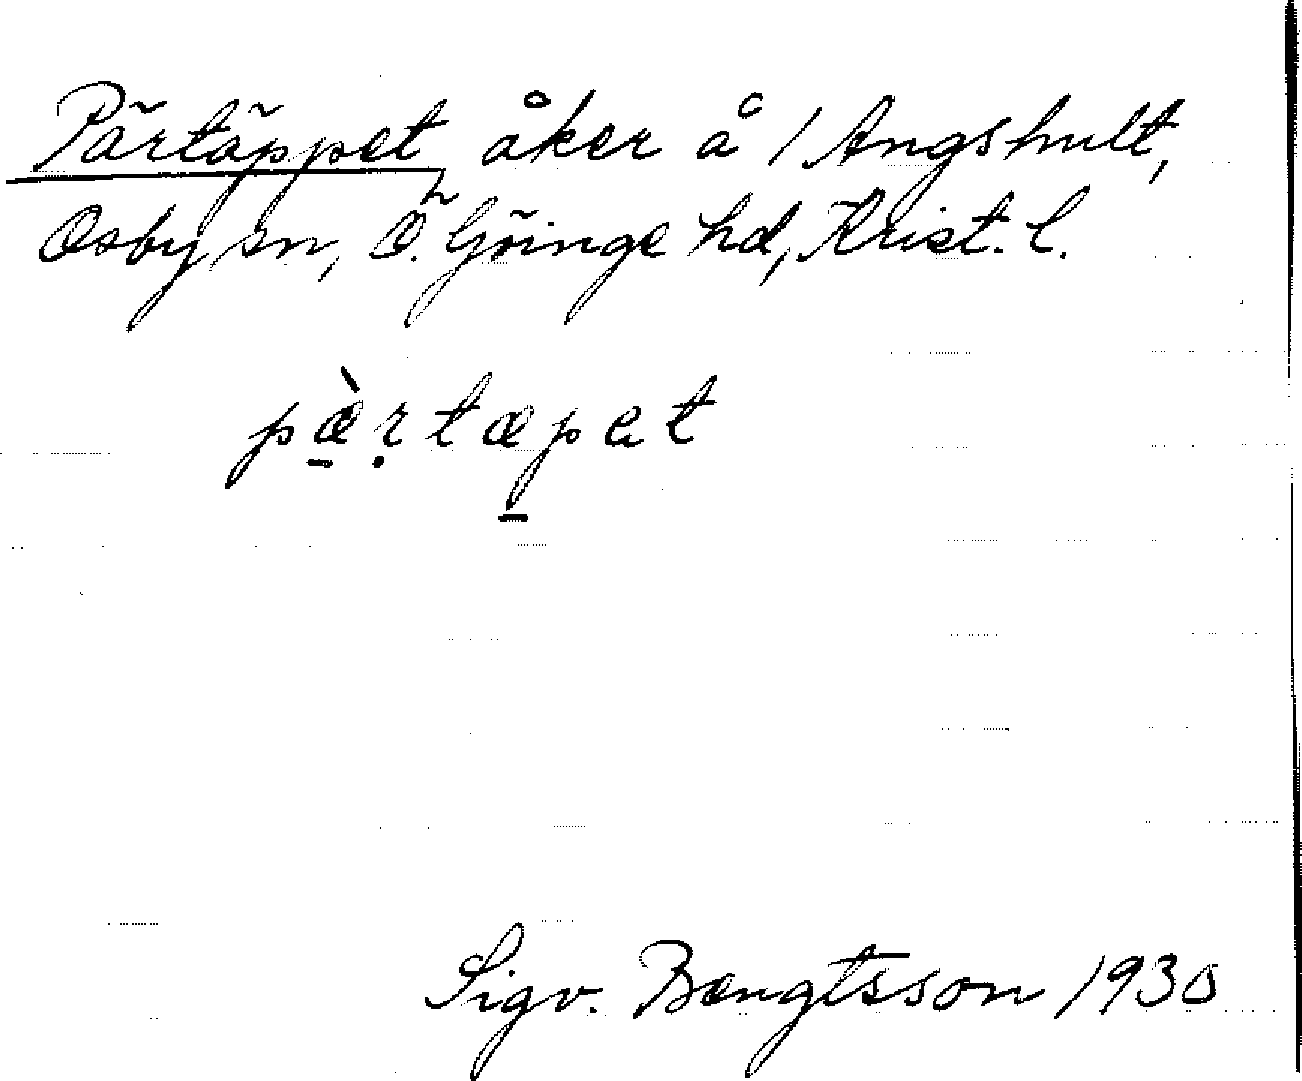 Pärtäppet åker å 1 Angshult,
Osby sn, Ö. Göinge hd, Krist. l.
pæ̠̀ṛtæp̠et
Sigv. Bengtsson 1930